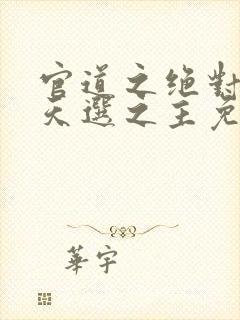 官道之绝對
天選之王免
華宇